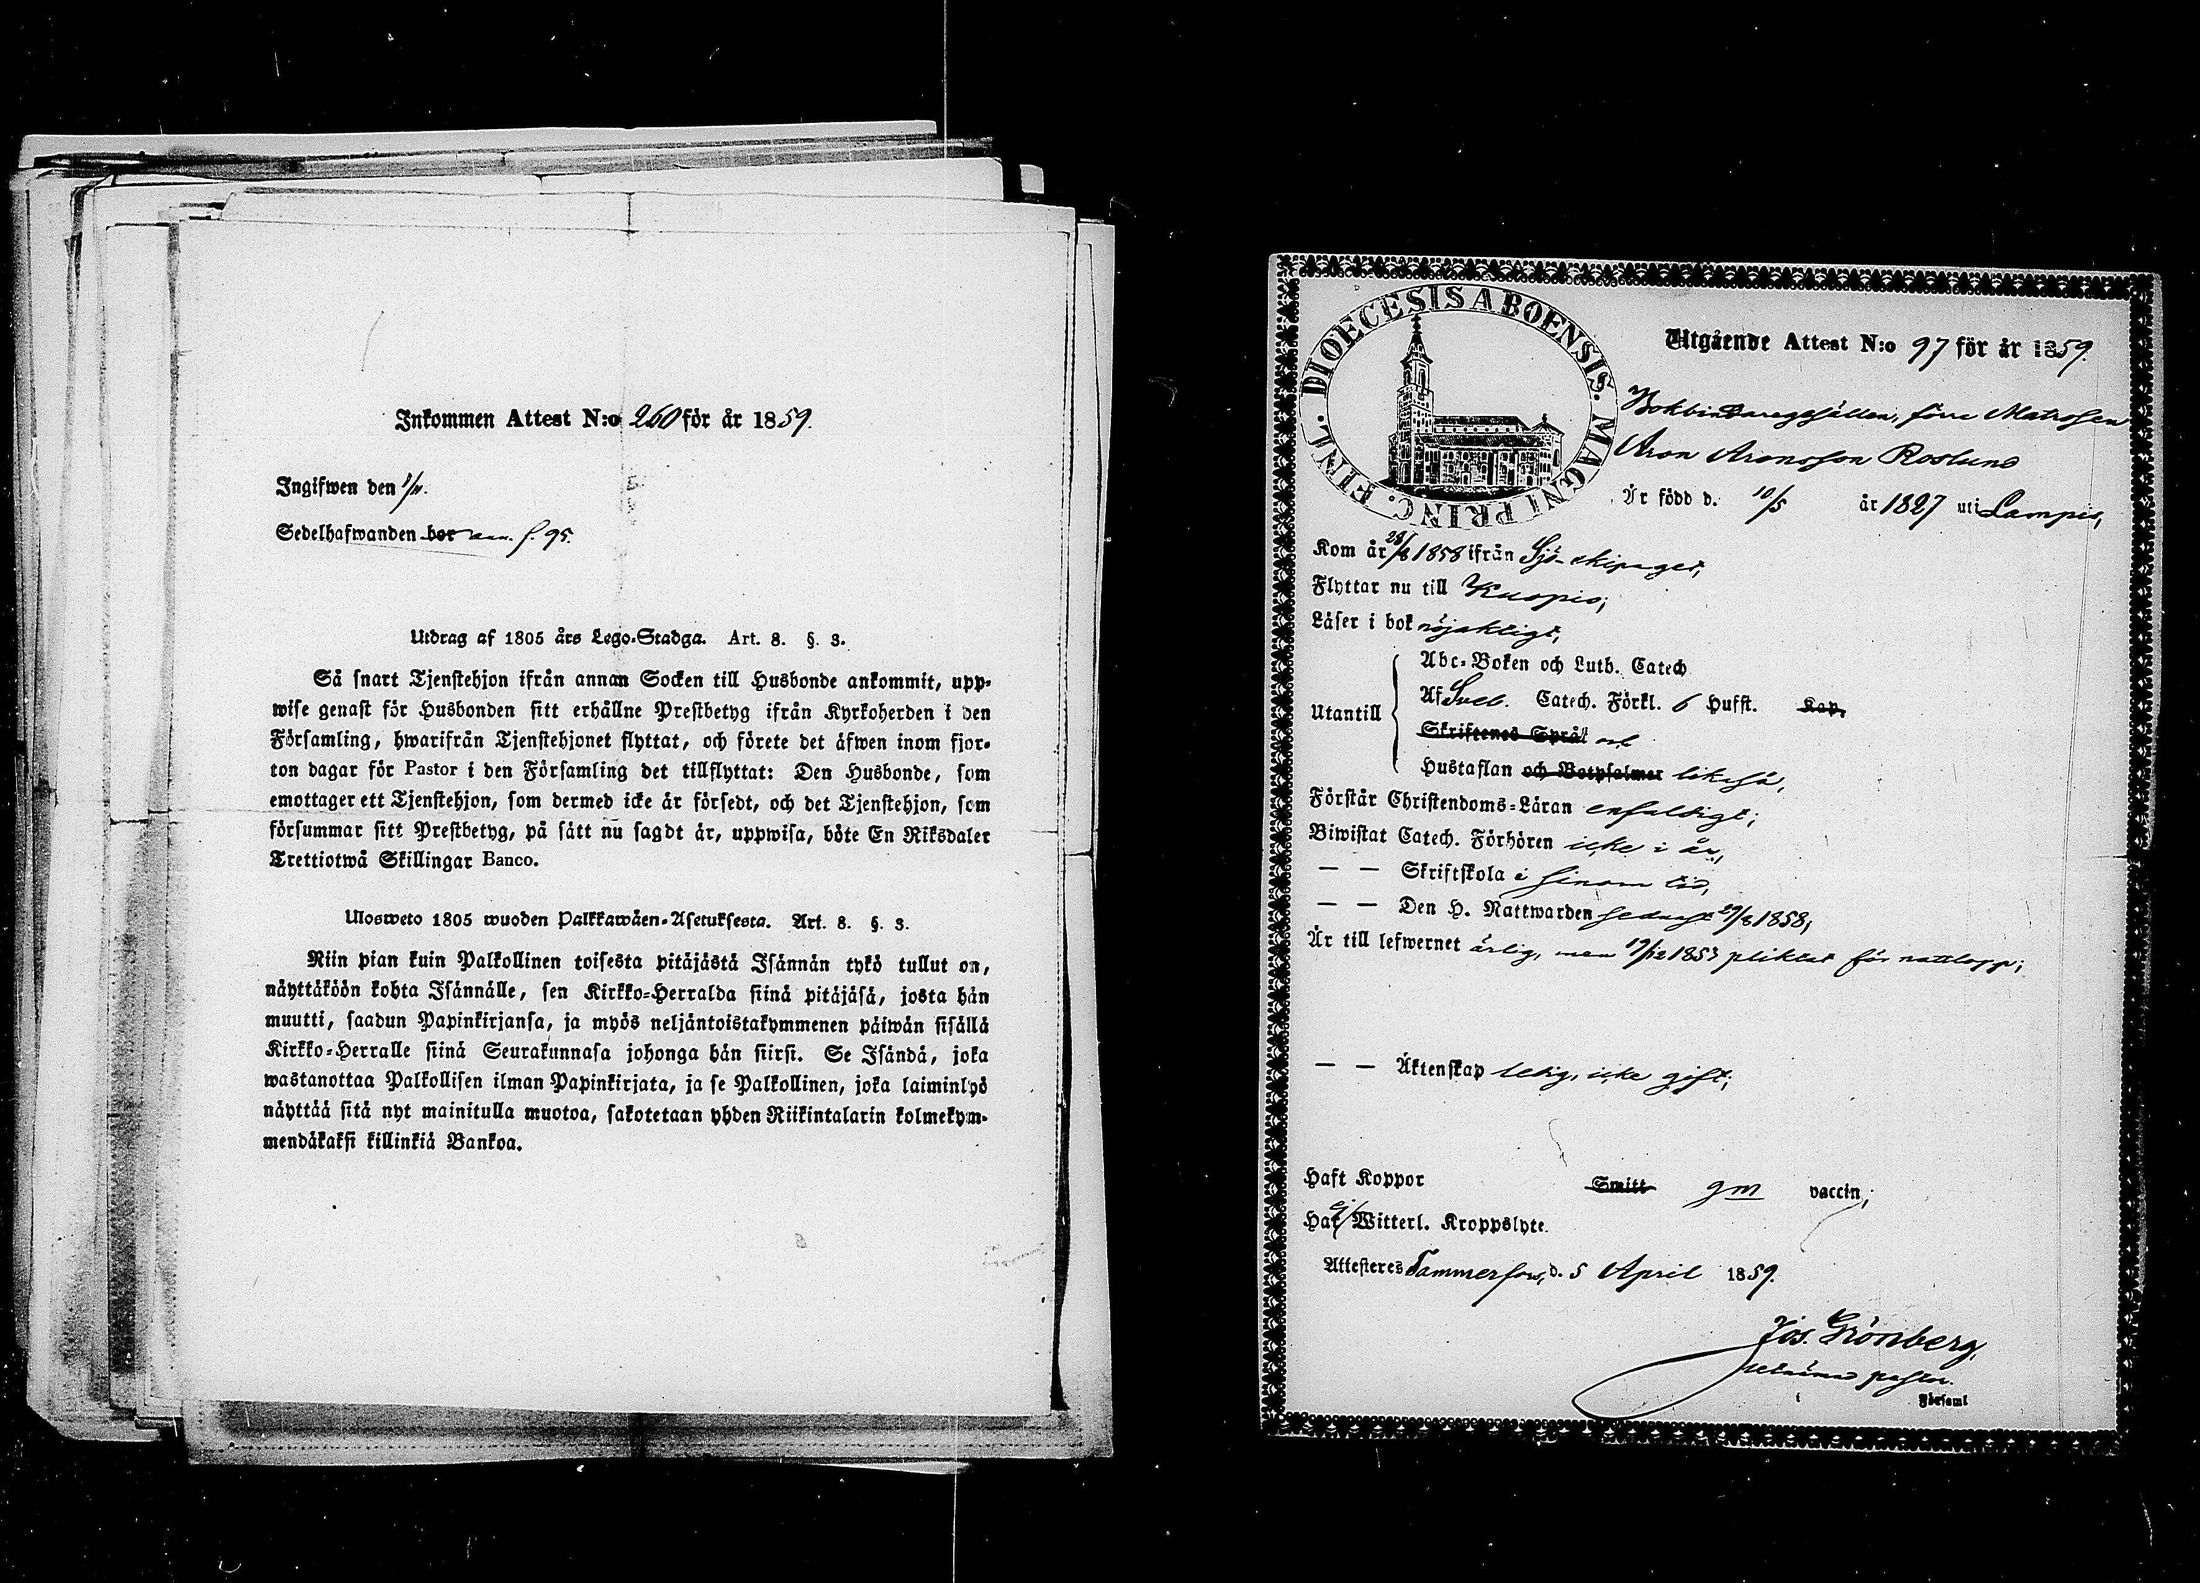 Inkommen Attest N:o 260 för år 1859.
Ingifwen den 1/11.
Sedelhafwanden bor ann. f. 95.
Utdrag af 1805 års Lego-Stadga. Art. 8. §. 3.
Så snart Tjenstehjon ifrån annan Socken till Husbonde ankommit, upp-
wise genast för Husbonden sitt erhållne Prestbetyg ifrån Kyrkoherden i den
Församling, hwarifrån Tjenstehjonet flyttat, och förete det äfwen inom fjor-
ton dagar för Pastor i den Församling det tillflyttat: Den Husbonde, som
emottager ett Tjenstehjon, som dermed icke är försedt, och det Tjenstehjon, som
försummar sitt Prestbetyg, på sätt nu sagdt är, uppwisa, böte En Riksdaler
Trettiotwå Skillingar Banco.
Ulosweto 1805 wuoden Palkkawäen-Asetuksesta. Art. 8. §. 3.
Niin pian kuin Palkollinen toisesta pitäjästä Isännän tykö tullut on,
näyttäköön kohta Isännälle, sen Kirkko-Herralda siinä pitäjäsä, josta hän
muutti, saadun Papinkirjansa, ja myös neljäntoistakymmenen päiwän sisällä
Kirkko-Herralle siinä Seurakunnasa johonga hän siirsi. Se Isändä, joka
wastanottaa Palkollisen ilman Papinkirjata, ja se Palkollinen, joka laiminlyö
näyttää sitä nyt mainitulla muotoa, sakotetaan yhden Riikintalarin kolmekym-
mendäkaksi killinkiä Bankoa.
DIOECESIS ABOENSIS. MAGNI PRINC. FINL.
Utgående Attest N:o 97 för år 1859.
Bokbindaregesällen, förre Matrosen
Aron Aronsson Roslund
Är född d. 10/5 år 1827 uti Lampis,
Kom år 28/8 1858 ifrån Sjö-ekipaget,
Flyttar nu till Kuopio;
Läser i bok nöjaktigt,
Abc-Boken och Luth. Catech
Utantill Af Sveb. Catech. Förkl. 6 Hufst. Kap.
Skriftenes Språk och
Hustaflan och Botpsalmer likaså,
Förstår Christendoms-Läran enfaldigt;
Biwistat Catech. Förhören icke i år,
— — Skriftskola i sinom tid,
— — Den H. Nattwarden sednast 29/8 1858;
Är till lefwernet ärlig, men 19/12 1853 pliktat för nattlopp;
— — Äktenskap ledig, icke gift;
Haft Koppor Smitt gm vaccin;
Har ej Witterl. Kroppslyte.
Attesteres Tammerfors, d. 5 April 1859.
Jos. Grönberg,
i Församl